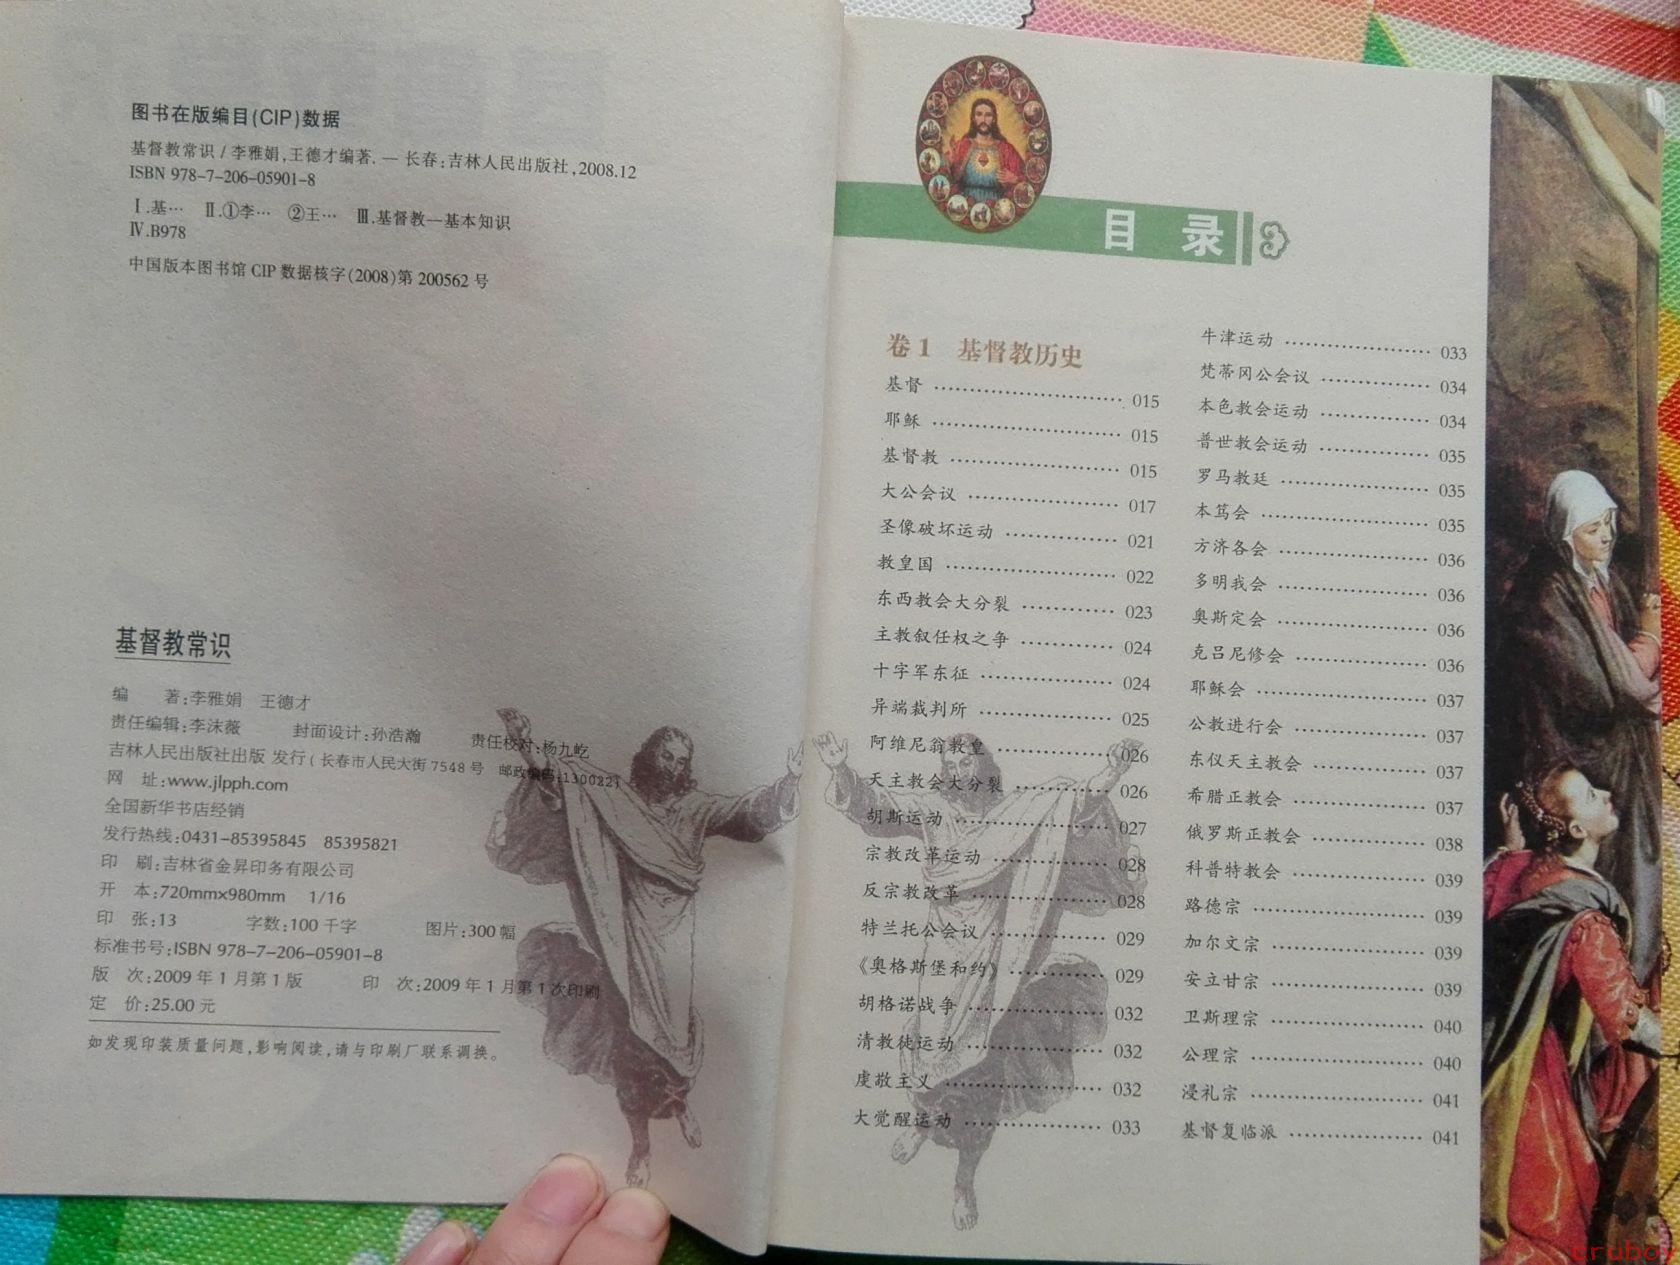 图书在版编目(CIP)数据
基督教常识 / 李雅娟,王德才编著. — 长春:吉林人民出版社,2008.12
ISBN 978-7-206-05901-8
Ⅰ.基… Ⅱ.①李… ②王… Ⅲ.基督教—基本知识
Ⅳ.B978
中国版本图书馆 CIP 数据核字(2008)第 200562 号
基督教常识
编 著:李雅娟 王德才
责任编辑:李沫薇 封面设计:孙浩瀚 责任校对:杨九屹
吉林人民出版社出版 发行(长春市人民大街 7548 号 邮政编码:130022)
网 址:www.jlpph.com
全国新华书店经销
发行热线:0431-85395845 85395821
印 刷:吉林省金昇印务有限公司
开 本:720mm×980mm 1/16
印 张:13 字数:100 千字 图片:300 幅
标准书号:ISBN 978-7-206-05901-8
版 次:2009 年 1 月第 1 版 印 次:2009 年 1 月第 1 次印刷
定 价:25.00 元
如发现印装质量问题,影响阅读,请与印刷厂联系调换。
目 录
卷 1 基督教历史
基督 …… 015
耶稣 …… 015
基督教 …… 015
大公会议 …… 017
圣像破坏运动 …… 021
教皇国 …… 022
东西教会大分裂 …… 023
主教叙任权之争 …… 024
十字军东征 …… 024
异端裁判所 …… 025
阿维尼翁教皇 …… 026
天主教会大分裂 …… 026
胡斯运动 …… 027
宗教改革运动 …… 028
反宗教改革 …… 028
特兰托公会议 …… 029
《奥格斯堡和约》 …… 029
胡格诺战争 …… 032
清教徒运动 …… 032
虔敬主义 …… 032
大觉醒运动 …… 033
牛津运动 …… 033
梵蒂冈公会议 …… 034
本色教会运动 …… 034
普世教会运动 …… 035
罗马教廷 …… 035
本笃会 …… 035
方济各会 …… 036
多明我会 …… 036
奥斯定会 …… 036
克吕尼修会 …… 036
耶稣会 …… 037
公教进行会 …… 037
东仪天主教会 …… 037
希腊正教会 …… 037
俄罗斯正教会 …… 038
科普特教会 …… 039
路德宗 …… 039
加尔文宗 …… 039
安立甘宗 …… 039
卫斯理宗 …… 040
公理宗 …… 040
浸礼宗 …… 041
基督复临派 …… 041
cruboy